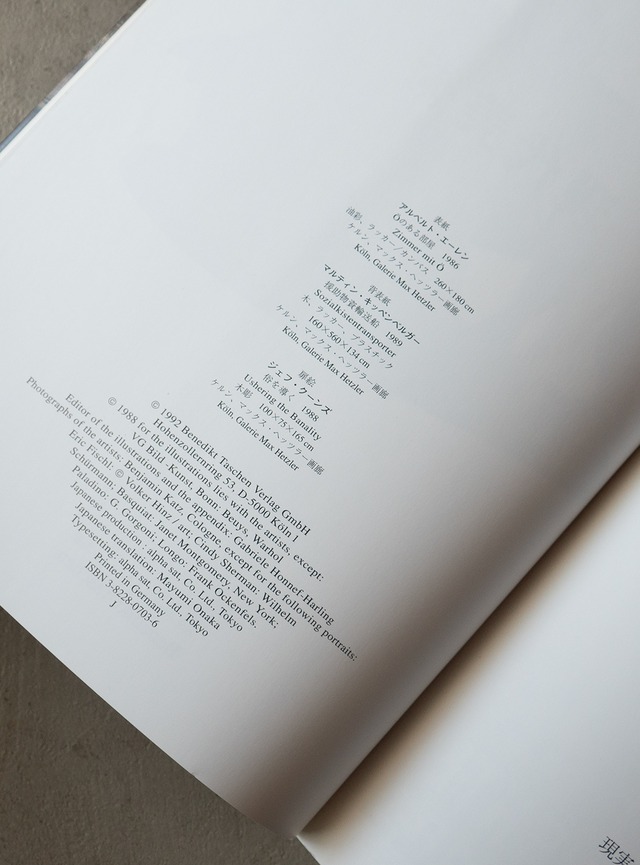 表紙
アルベルト・エーレン
Öのある部屋 1986
Zimmer mit Ö
油彩、ラッカー/カンバス 260×180 cm
ケルン、マックス・ヘッツラー画廊
Köln, Galerie Max Hetzler
背表紙
マルティン・キッペンベルガー
援助物資輸送船 1989
Sozialkistentransporter
木、ラッカー、プラスチック
160×560×134 cm
ケルン、マックス・ヘッツラー画廊
Köln, Galerie Max Hetzler
扉絵
ジェフ・クーンズ
俗を導く 1988
Ushering the Banality
木彫 100×75×165 cm
ケルン、マックス・ヘッツラー画廊
Köln, Galerie Max Hetzler
© 1992 Benedikt Taschen Verlag GmbH
Hohenzollernring 53, D-5000 Köln 1
© 1988 for the illustrations lies with the artists, except:
VG Bild-Kunst, Bonn: Beuys, Warhol
Editor of the illustrations and the appendix: Gabriele Honnef-Harling
Photographs of the artists: Benjamin Katz, Cologne, except for the following portraits:
Eric Fischl: © Volker Hinz/art; Cindy Sherman: Wilhelm
Schürmann; Basquiat: Janet Montgomery, New York;
Paladino: G. Gorgoni; Longo: Frank Ockenfels.
Japanese production: alpha sat. Co. Ltd., Tokyo
Japanese translation: Mayumi Otaka
Typesetting: alpha sat. Co. Ltd. Tokyo
Printed in Germany
ISBN 3-8228-0703-6
J
現実